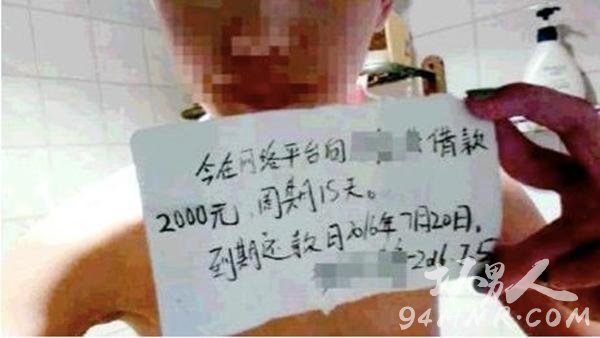 今在网络平台向 借款
2000元,周期15天。
到期还款日2016年7月20日。
-2016.7.5
男人
94HNR.COM